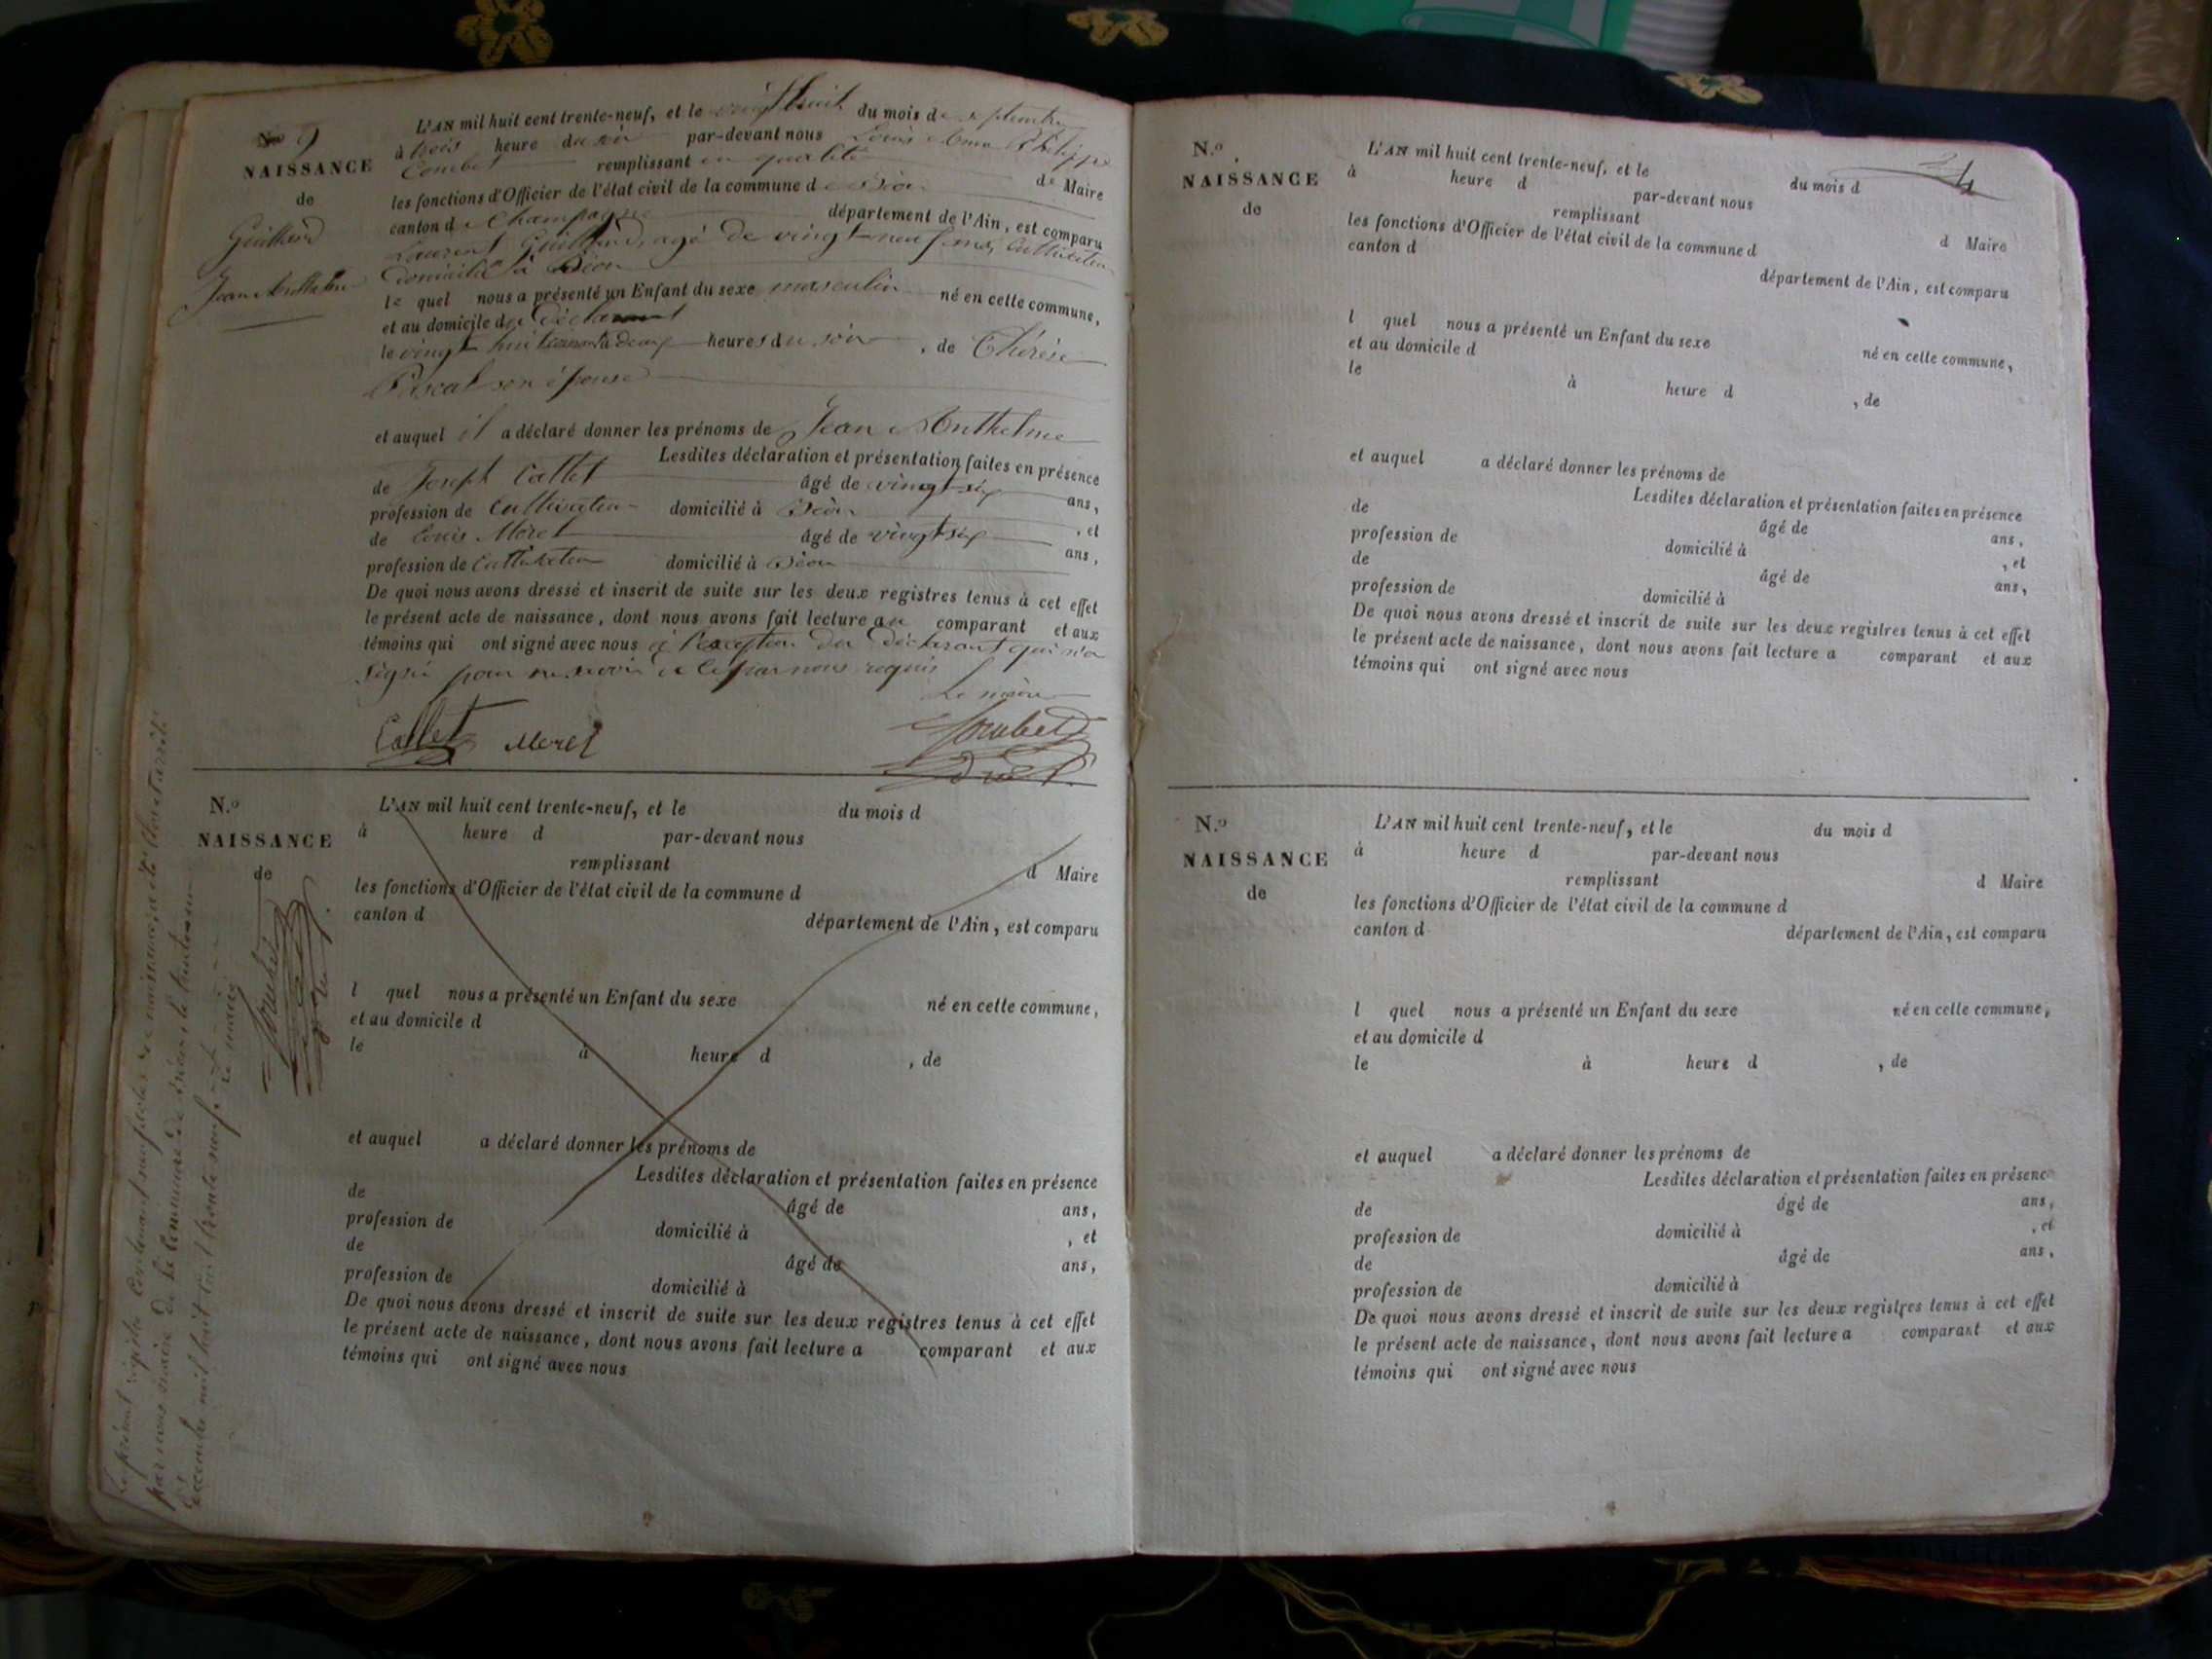 No 9
NAISSANCE
de
Guilland
Jean Anthelme
L'AN mil huit cent trente-neuf, et le vingt huit du mois de septembre
à trois heure du soir par-devant nous Louis Philippe
remplissant en qualité de Maire
les fonctions d'Officier de l'état civil de la commune de Béon
canton de Champagne département de l'Ain, est comparu
Laurent Guilland, agé de vingt neuf ans, Cultivateur
domicilié à Béon
le quel nous a présenté un Enfant du sexe masculin né en cette commune,
et au domicile du déclarant
le vingt huit à deux heures du soir, de Thérèse
Pascal son épouse
et auquel il a déclaré donner les prénoms de Jean Anthelme
Lesdites déclaration et présentation faites en présence
de Joseph Callet âgé de vingt six ans,
profession de Cultivateur domicilié à Béon, et
de Louis Moret âgé de vingt six ans,
profession de Cultivateur domicilié à Béon
De quoi nous avons dressé et inscrit de suite sur les deux registres tenus à cet effet
le présent acte de naissance, dont nous avons fait lecture au comparant et aux
témoins qui ont signé avec nous à l'exception du déclarant qui n'a
signé pour ne savoir de ce par nous requis
Le maire
Callet Moret
N.o
NAISSANCE
de
L'AN mil huit cent trente-neuf, et le du mois d
à heure d par-devant nous
remplissant d Maire
les fonctions d'Officier de l'état civil de la commune d
canton d département de l'Ain, est comparu
l quel nous a présenté un Enfant du sexe né en cette commune,
et au domicile d
le à heure d , de
et auquel a déclaré donner les prénoms de
Lesdites déclaration et présentation faites en présence
de âgé de ans,
profession de domicilié à , et
de âgé de ans,
profession de domicilié à
De quoi nous avons dressé et inscrit de suite sur les deux registres tenus à cet effet
le présent acte de naissance, dont nous avons fait lecture a comparant et aux
témoins qui ont signé avec nous
Le présent registre contenant neuf actes de naissance a été clos et arrêté
par nous maire de la commune de Béon le trente un
décembre mil huit cent trente neuf
Le maire
N.o
NAISSANCE
de
L'AN mil huit cent trente-neuf, et le du mois d
à heure d par-devant nous
remplissant d Maire
les fonctions d'Officier de l'état civil de la commune d
canton d département de l'Ain, est comparu
l quel nous a présenté un Enfant du sexe né en cette commune,
et au domicile d
le à heure d , de
et auquel a déclaré donner les prénoms de
Lesdites déclaration et présentation faites en présence
de âgé de ans,
profession de domicilié à , et
de âgé de ans,
profession de domicilié à
De quoi nous avons dressé et inscrit de suite sur les deux registres tenus à cet effet
le présent acte de naissance, dont nous avons fait lecture a comparant et aux
témoins qui ont signé avec nous
N.o
NAISSANCE
de
L'AN mil huit cent trente-neuf, et le du mois d
à heure d par-devant nous
remplissant d Maire
les fonctions d'Officier de l'état civil de la commune d
canton d département de l'Ain, est comparu
l quel nous a présenté un Enfant du sexe né en cette commune,
et au domicile d
le à heure d , de
et auquel a déclaré donner les prénoms de
Lesdites déclaration et présentation faites en présence
de âgé de ans,
profession de domicilié à , et
de âgé de ans,
profession de domicilié à
De quoi nous avons dressé et inscrit de suite sur les deux registres tenus à cet effet
le présent acte de naissance, dont nous avons fait lecture a comparant et aux
témoins qui ont signé avec nous